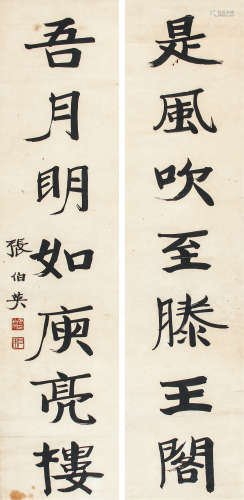 是風吹至滕王閣
吾月明如庾亮樓
張伯英